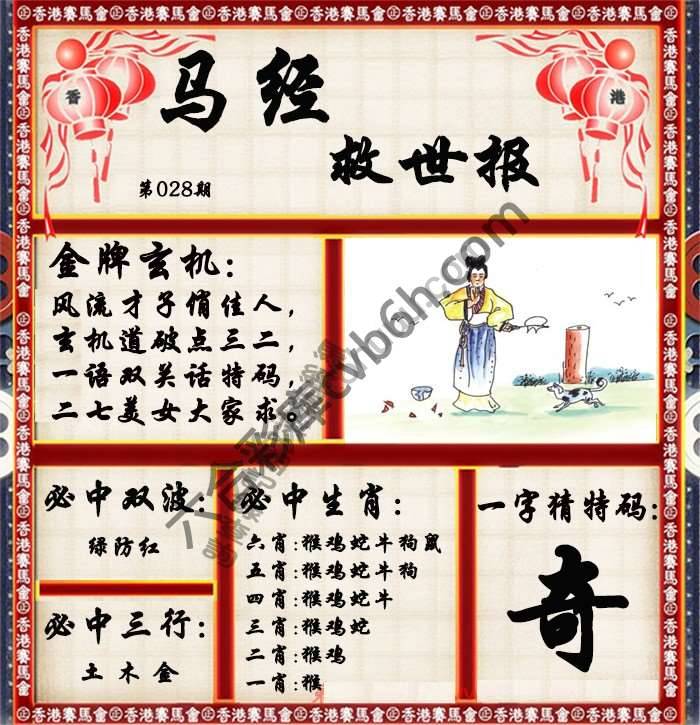 香港賽馬會
香
港
马经
救世报
第028期
金牌玄机：
风流才子俏佳人，
玄机道破点三二，
一语双关话特码，
二七美女大家求。
必中双波：
绿防红
必中三行：
土木金
必中生肖：
六肖：猴鸡蛇牛狗鼠
五肖：猴鸡蛇牛狗
四肖：猴鸡蛇牛
三肖：猴鸡蛇
二肖：猴鸡
一肖：猴
一字猜特码：
奇
六合彩库cvb6h.com